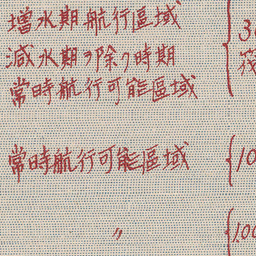 増水期航行區域
減水期ヲ除ク時期
常時航行可能區域
常時航行可能區域
〃